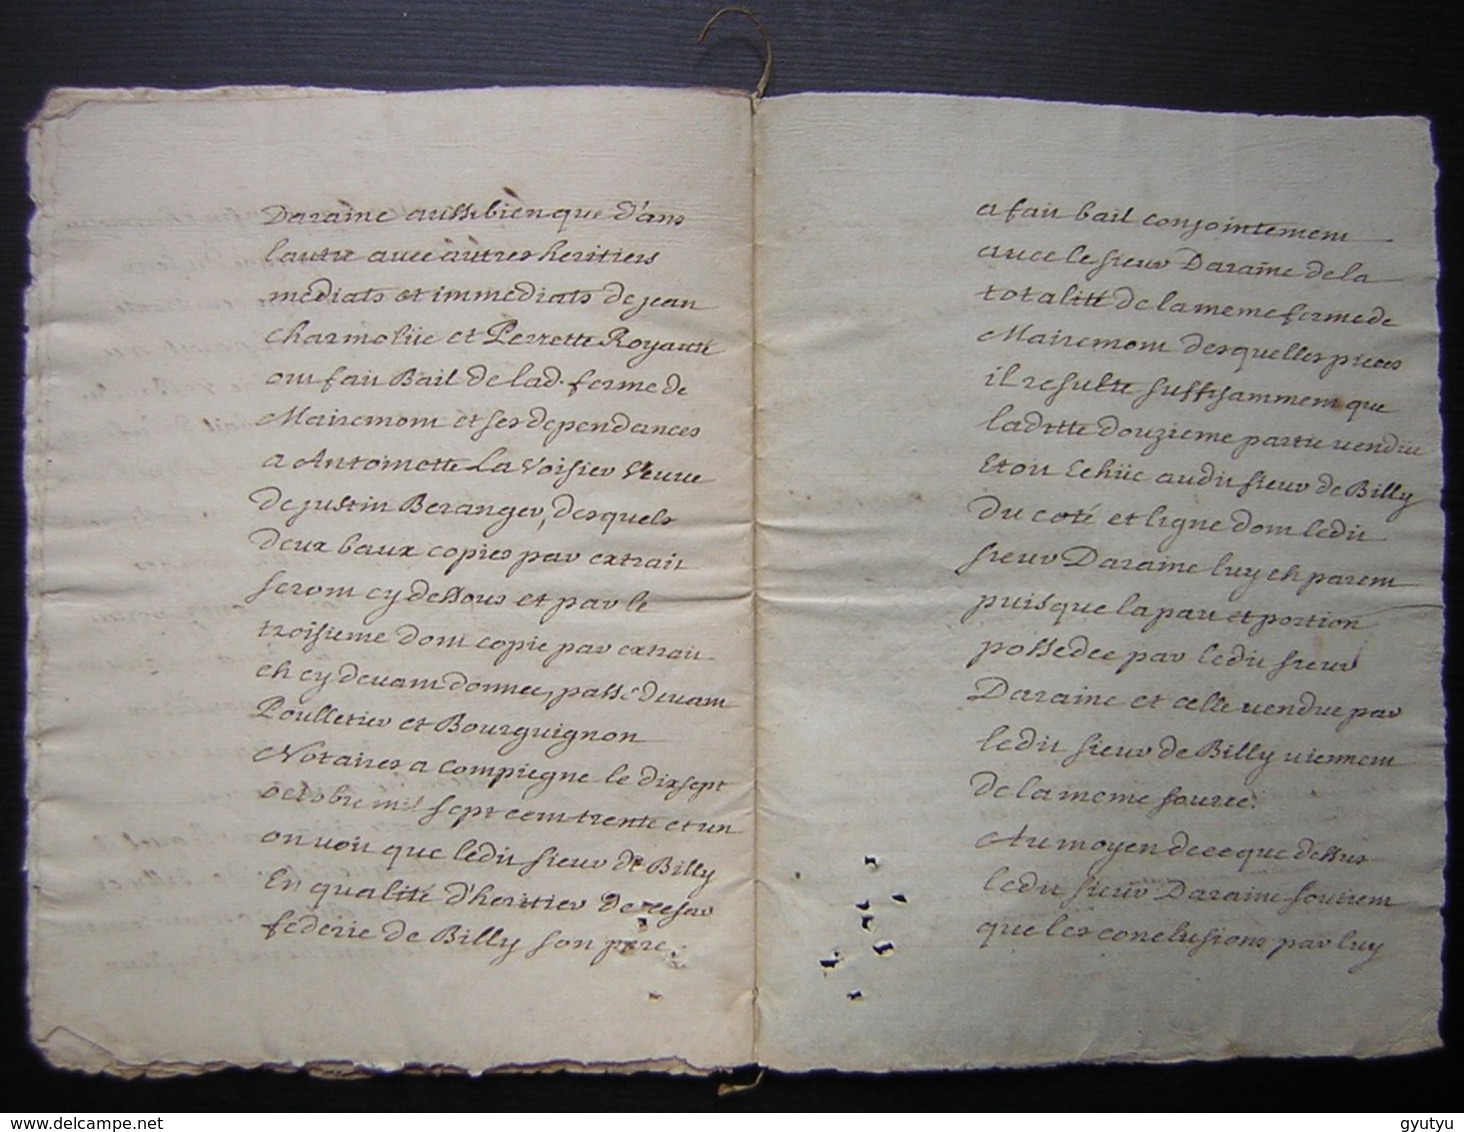 Daraine aussi bien que d'ans
lautre avec autres heritiers
mediats et immediats de jean
charmolüe et Perrette Royaux
ont fait Bail de lad. ferme de
Mairemont et ses dependances
a Antoinette La Voisier Veuve
de justin Beranger, desquels
deux baux copies par extrait
seront cy dessous et par le
troisieme dont copie par extrait
Ch cy devant donnee, passé devant
Poulletier et Bourguignon
Notaires a compiegne le dixsept
octobre mil sept cent trente et un
on voit que ledit sieur de Billy
En qualité d'heritier de cesar
federic de Billy son pere.
a fait bail conjointement
avec le sieur Daraine de la
totalitté de la meme ferme de
Mairemont desquelles pieces
il resulte suffisamment que
laditte douzieme partie vendüe
Etoit Echüe audit sieur de Billy
du coté et ligne dont ledit
sieur Daraine luy Ch parent
puisque la part et portion
possedee par ledit sieur
Daraine et celle vendue par
ledit sieur de Billy viennent
de la meme source.
Au moyen de ce que dessus
ledit sieur Daraine soutient
que les conclusions par luy
delcampe.net
gyutyu